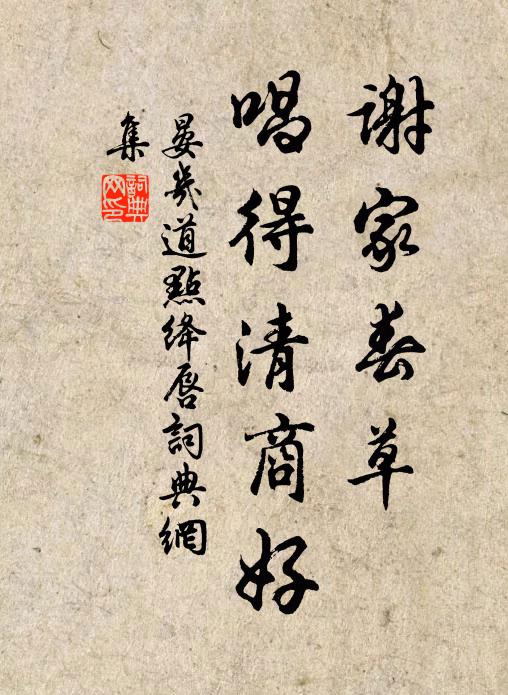 謝家春草
唱得清商好
晏幾道點絳唇詞典網
集
詞典网印